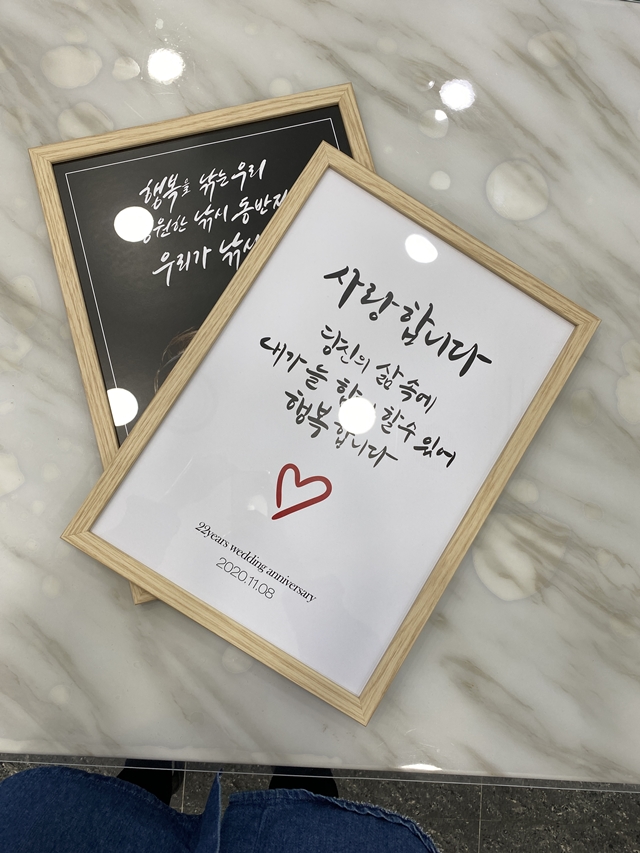 행복을 낚는 우리
낚시 동반자
우리가
사랑합니다
당신의 삶 속에
내가 늘 할 수 있어
행복합니다
22years wedding anniversary
2020.11.08